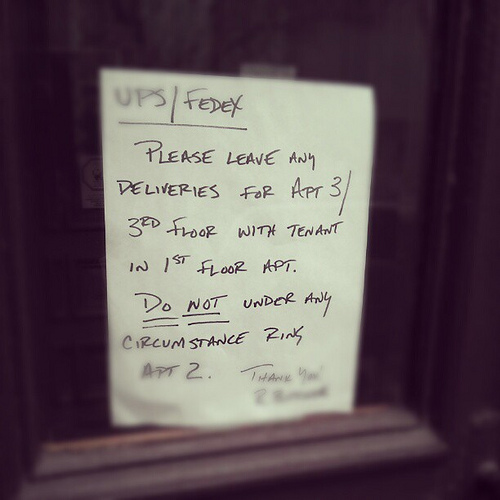 UPS/FEDEX
PLEASE LEAVE ANY
DELIVERIES FOR APT 3/
3RD FLOOR WITH TENANT
IN 1ST FLOOR APT.
DO NOT UNDER ANY
CIRCUMSTANCE RING
APT 2. THANK YOU